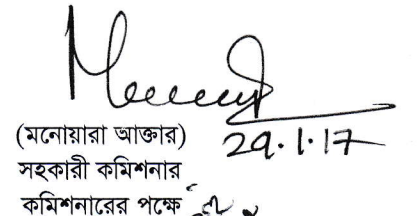 (মনোয়ারা আক্তার) 29.1.17
সহকারী কমিশনার
কমিশনারের পক্ষে